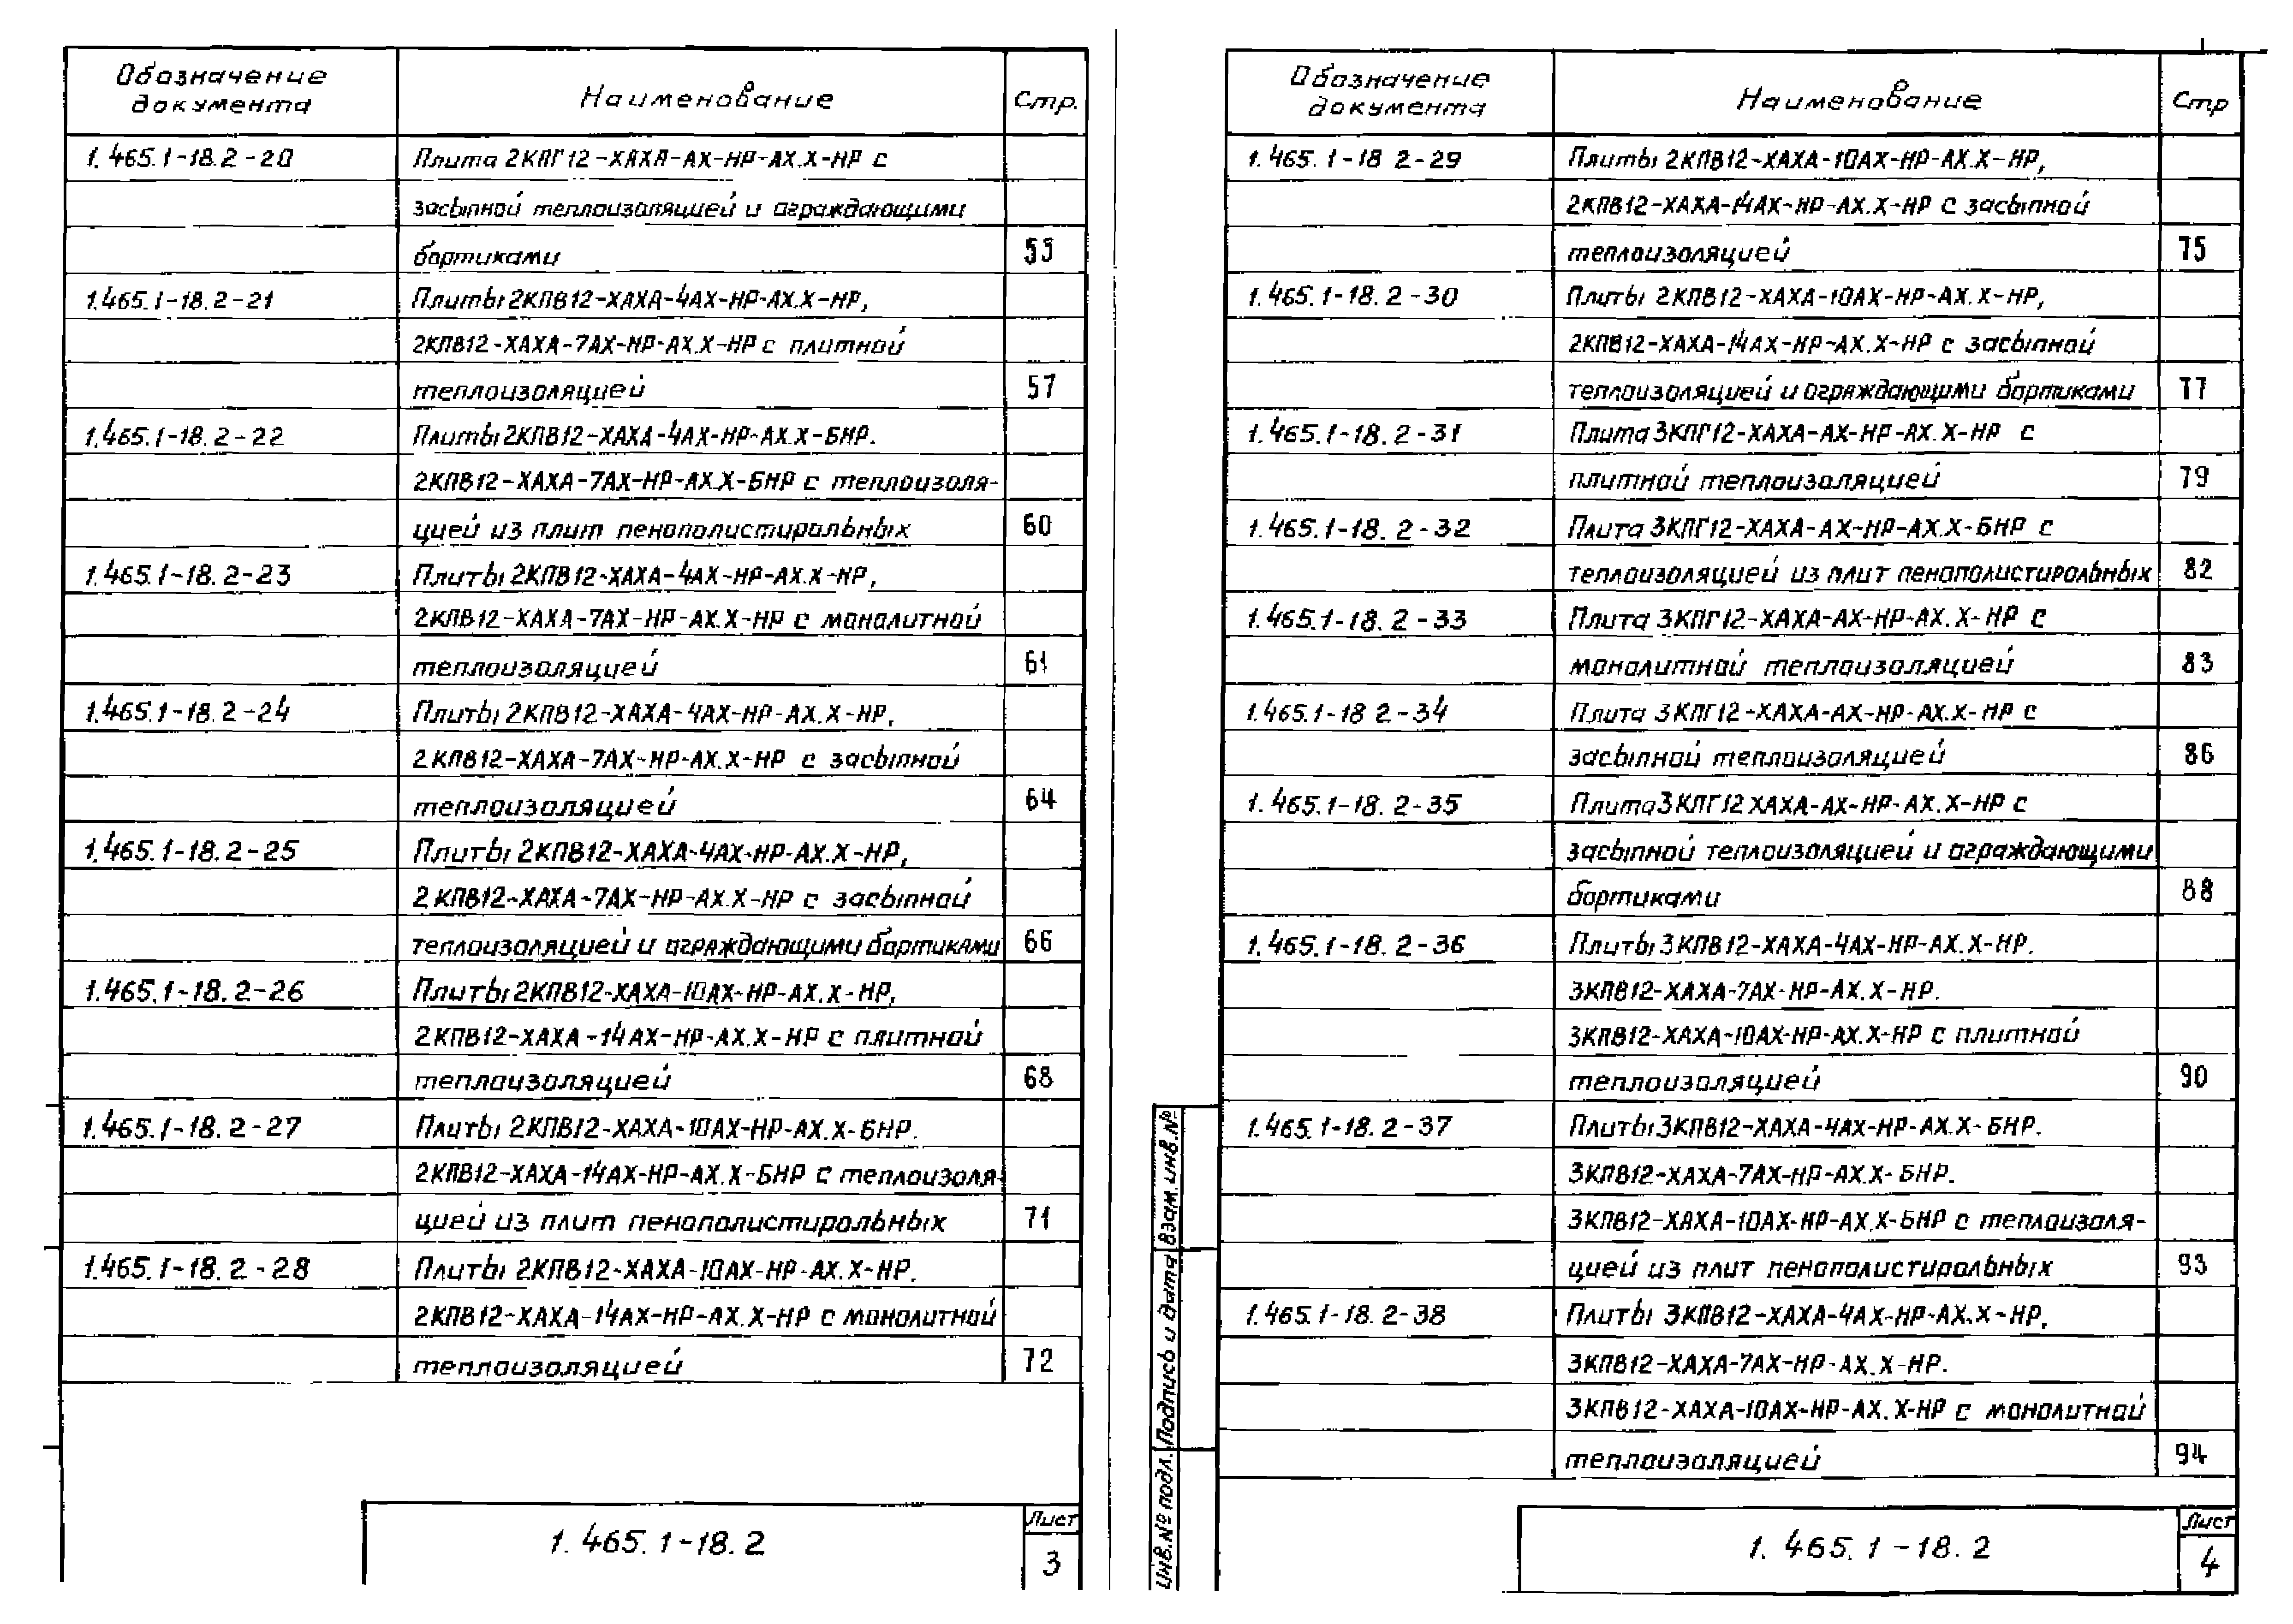 Обозначение
документа
Наименование
Стр.
1.465.1-18.2-20
Плита 2КПГ12-ХАХА-АХ-НР-АХ.Х-НР с
засыпной теплоизоляцией и ограждающими
бортиками
55
1.465.1-18.2-21
Плиты 2КПВ12-ХАХА-4АХ-НР-АХ.Х-НР,
2КПВ12-ХАХА-7АХ-НР-АХ.Х-НР с плитной
теплоизоляцией
57
1.465.1-18.2-22
Плиты 2КПВ12-ХАХА-4АХ-НР-АХ.Х-БНР.
2КПВ12-ХАХА-7АХ-НР-АХ.Х-БНР с теплоизоля-
цией из плит пенополистирольных
60
1.465.1-18.2-23
Плиты 2КПВ12-ХАХА-4АХ-НР-АХ.Х-НР,
2КПВ12-ХАХА-7АХ-НР-АХ.Х-НР с монолитной
теплоизоляцией
61
1.465.1-18.2-24
Плиты 2КПВ12-ХАХА-4АХ-НР-АХ.Х-НР,
2КПВ12-ХАХА-7АХ-НР-АХ.Х-НР с засыпной
теплоизоляцией
64
1.465.1-18.2-25
Плиты 2КПВ12-ХАХА-4АХ-НР-АХ.Х-НР,
2КПВ12-ХАХА-7АХ-НР-АХ.Х-НР с засыпной
теплоизоляцией и ограждающими бортиками
66
1.465.1-18.2-26
Плиты 2КПВ12-ХАХА-10АХ-НР-АХ.Х-НР,
2КПВ12-ХАХА-14АХ-НР-АХ.Х-НР с плитной
теплоизоляцией
68
1.465.1-18.2-27
Плиты 2КПВ12-ХАХА-10АХ-НР-АХ.Х-БНР.
2КПВ12-ХАХА-14АХ-НР-АХ.Х-БНР с теплоизоля-
цией из плит пенополистирольных
71
1.465.1-18.2-28
Плиты 2КПВ12-ХАХА-10АХ-НР-АХ.Х-НР.
2КПВ12-ХАХА-14АХ-НР-АХ.Х-НР с монолитной
теплоизоляцией
72
1.465.1-18.2
Лист
3
Обозначение
документа
Наименование
Стр
1.465.1-18 2-29
Плиты 2КПВ12-ХАХА-10АХ-НР-АХ.Х-НР,
2КПВ12-ХАХА-14АХ-НР-АХ.Х-НР с засыпной
теплоизоляцией
75
1.465.1-18.2-30
Плиты 2КПВ12-ХАХА-10АХ-НР-АХ.Х-НР,
2КПВ12-ХАХА-14АХ-НР-АХ.Х-НР с засыпной
теплоизоляцией и ограждающими бортиками
77
1.465.1-18.2-31
Плита 3КПГ12-ХАХА-АХ-НР-АХ.Х-НР с
плитной теплоизоляцией
79
1.465.1-18.2-32
Плита 3КПГ12-ХАХА-АХ-НР-АХ.Х-БНР с
теплоизоляцией из плит пенополистирольных
82
1.465.1-18.2-33
Плита 3КПГ12-ХАХА-АХ-НР-АХ.Х-НР с
монолитной теплоизоляцией
83
1.465.1-18 2-34
Плита 3КПГ12-ХАХА-АХ-НР-АХ.Х-НР с
засыпной теплоизоляцией
86
1.465.1-18.2-35
Плита 3КПГ12 ХАХА-АХ-НР-АХ.Х-НР с
засыпной теплоизоляцией и ограждающими
бортиками
88
1.465.1-18.2-36
Плиты 3КПВ12-ХАХА-4АХ-НР-АХ.Х-НР.
3КПВ12-ХАХА-7АХ-НР-АХ.Х-НР.
3КПВ12-ХАХА-10АХ-НР-АХ.Х-НР с плитной
теплоизоляцией
90
1.465.1-18.2-37
Плиты 3КПВ12-ХАХА-4АХ-НР-АХ.Х-БНР.
3КПВ12-ХАХА-7АХ-НР-АХ.Х-БНР.
3КПВ12-ХАХА-10АХ-НР-АХ.Х-БНР с теплоизоля-
цией из плит пенополистирольных
93
1.465.1-18.2-38
Плиты 3КПВ12-ХАХА-4АХ-НР-АХ.Х-НР,
3КПВ12-ХАХА-7АХ-НР-АХ.Х-НР.
3КПВ12-ХАХА-10АХ-НР-АХ.Х-НР с монолитной
теплоизоляцией
94
Инв.№ подл.
Подпись и дата
Взам. инв.№
1.465.1-18.2
Лист
4